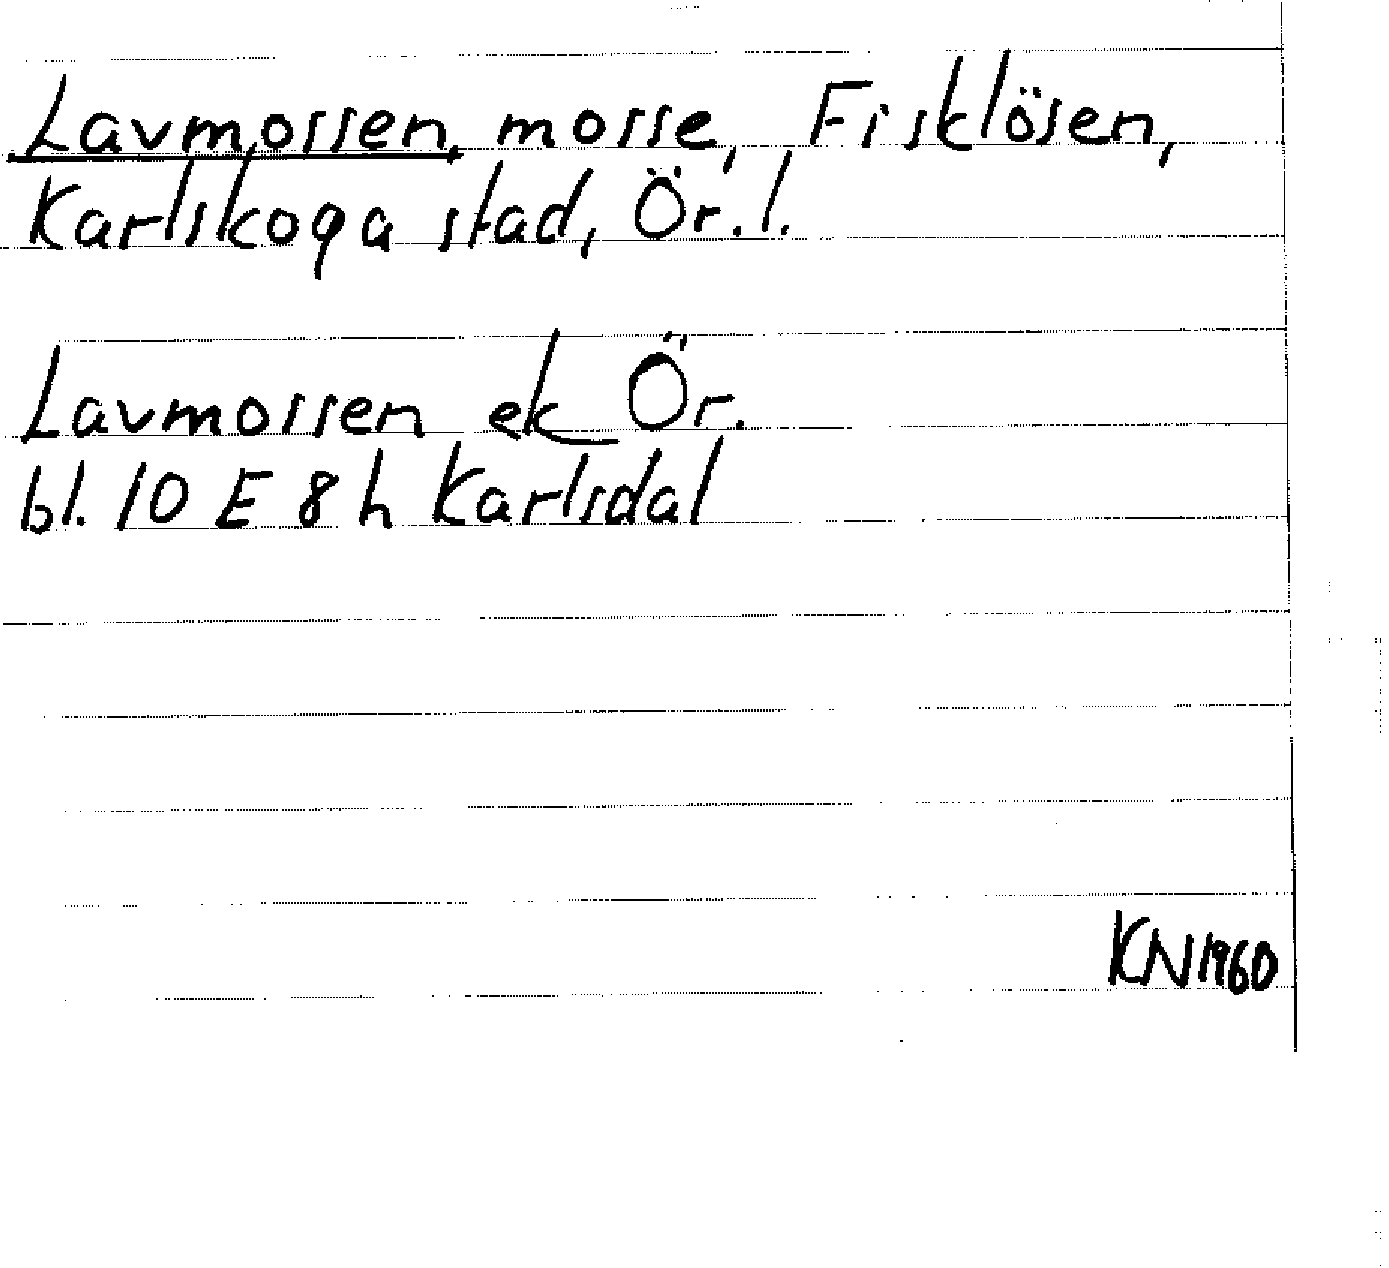 Lavmossen, mosse, Fisklösen,
Karlskoga stad, Ör. l.
Lavmossen ek Ör.
bl. 10 E 8 h Karlsdal
KN 1960